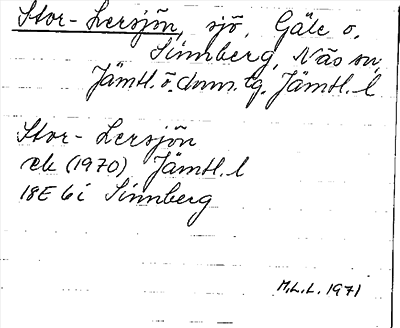 Stor-Lersjön, sjö, Gåle o.
Sinnberg, Näs sn,
Jämtl. ö. dnm. tg. Jämtl. l
Stor-Lersjön
ek (1970) Jämtl. l
18E 6i Sinnberg
M.L.L. 1971